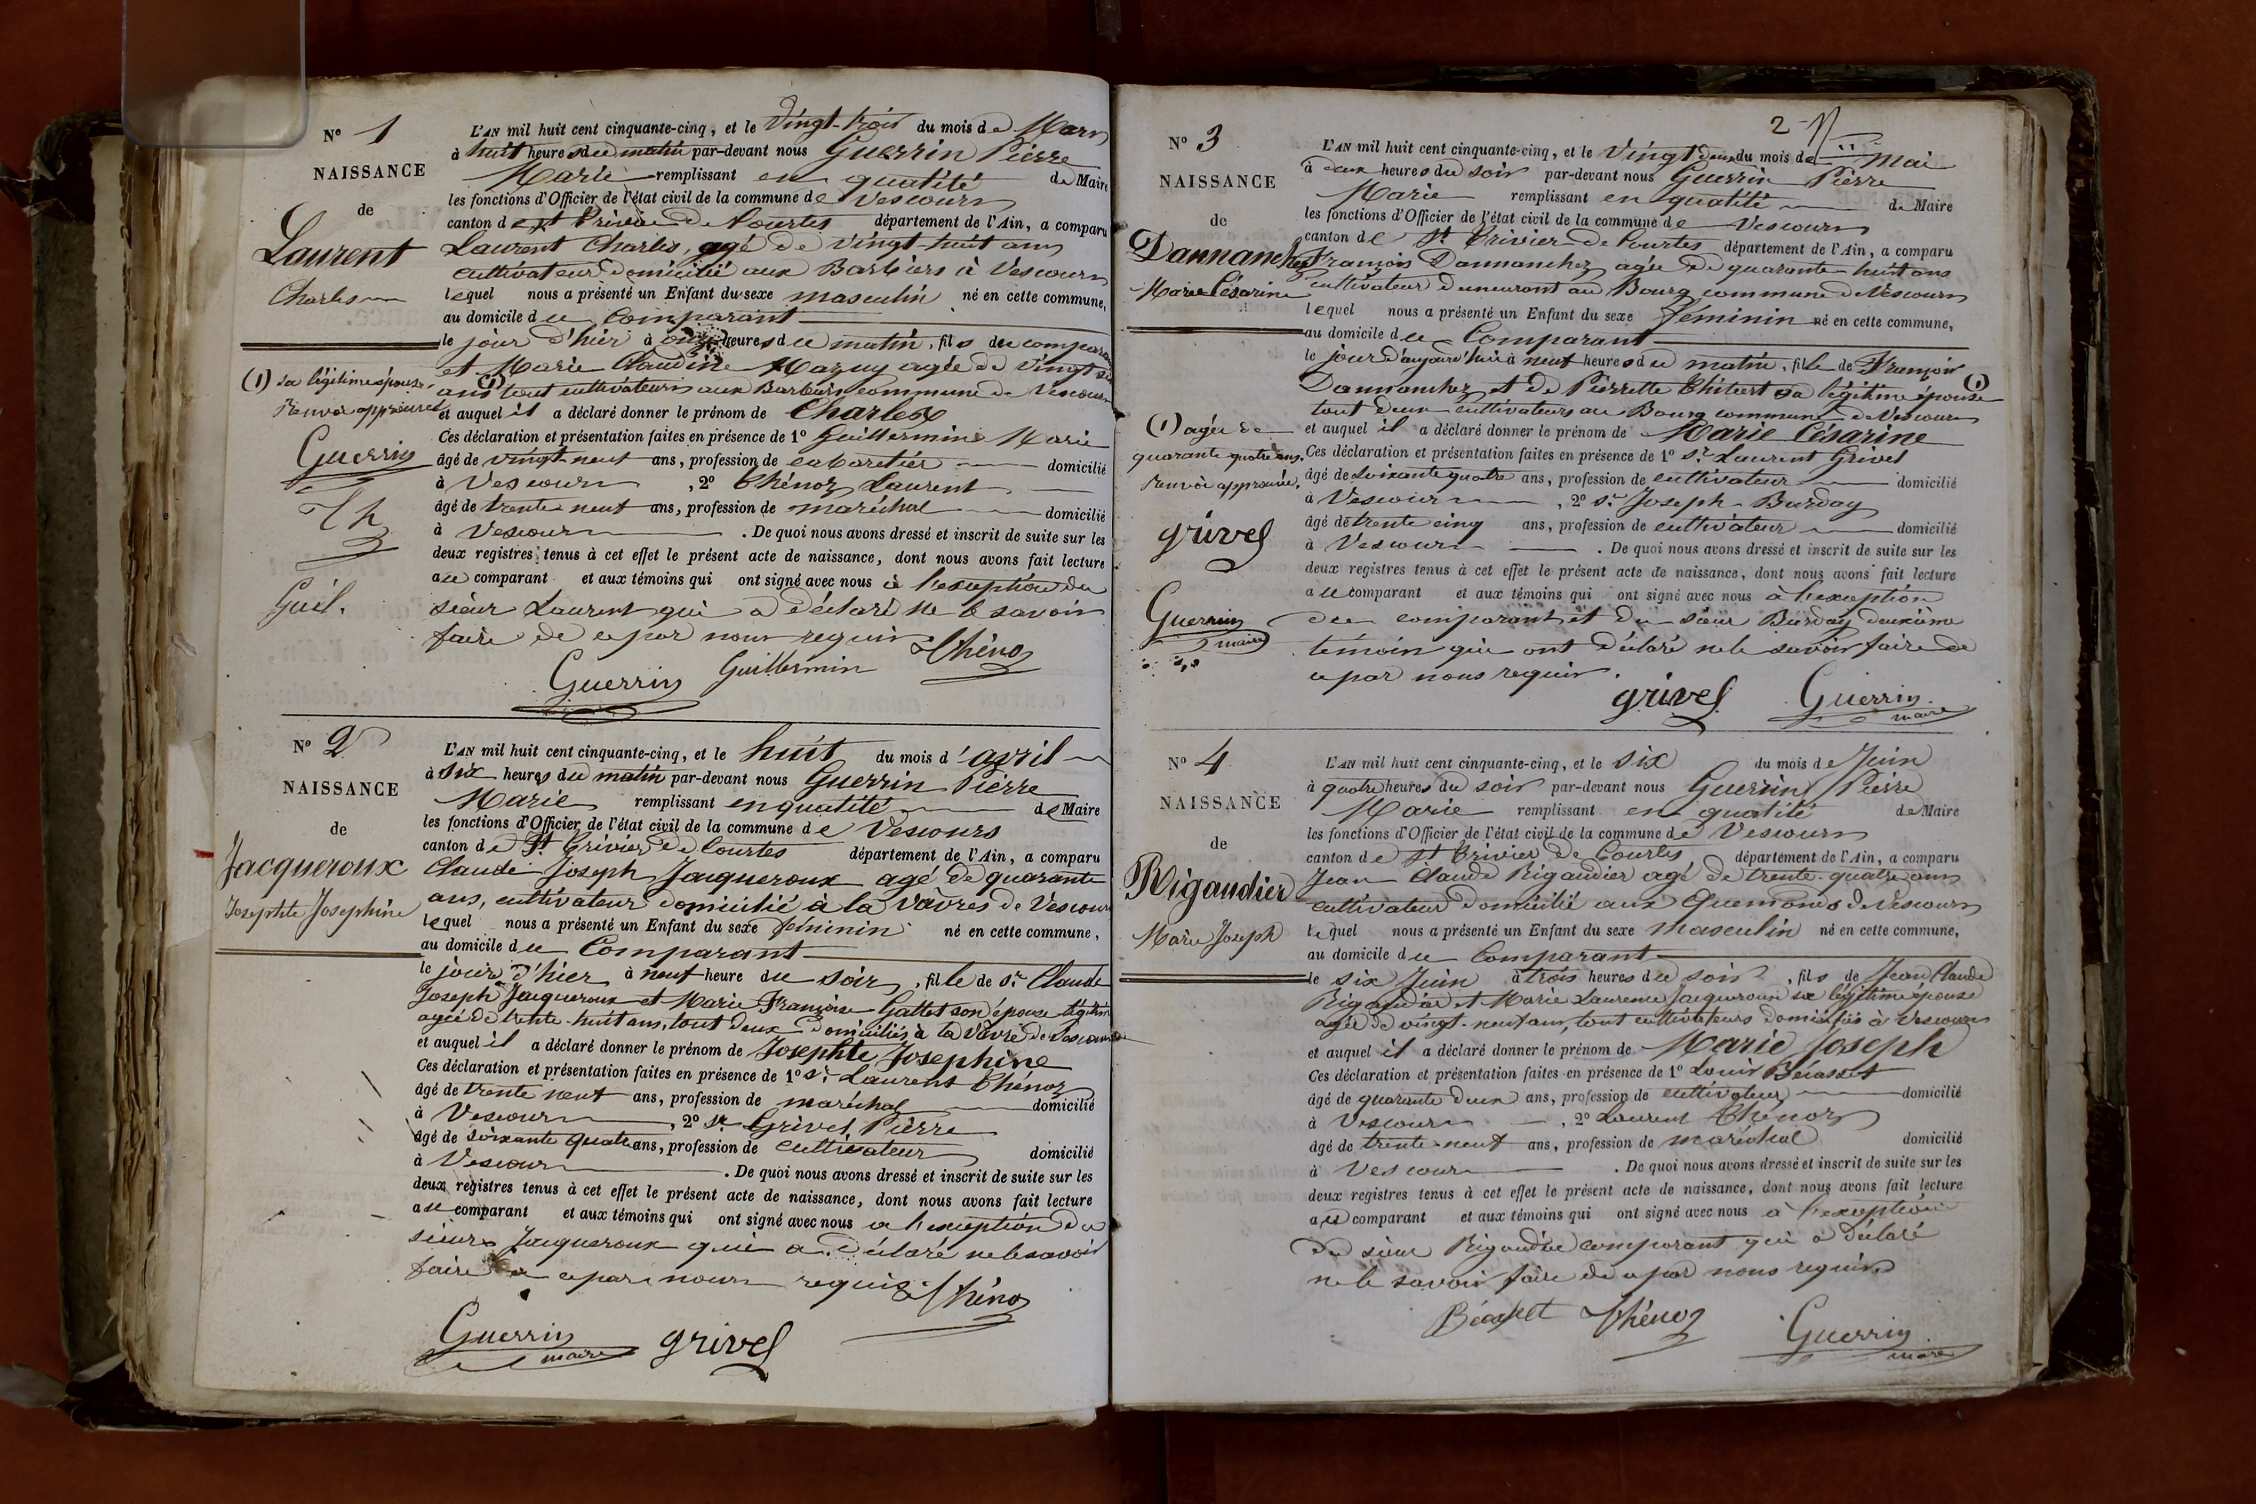 N° 1
NAISSANCE
de
Laurent
Charles
L'AN mil huit cent cinquante-cinq, et le vingt-trois du mois de Mars
à huit heures du matin par-devant nous Guerrin Pierre
Marie remplissant en qualité de Maire
les fonctions d'Officier de l'état civil de la commune de Vescours
canton de St Trivier de Courtes département de l'Ain, a comparu
Laurent Charles, agé de vingt huit ans
cultivateur domicilié aux Barbiers à Vescours
lequel nous a présenté un Enfant du sexe masculin né en cette commune,
au domicile du Comparant
le jour d'hier à onze heures du matin, fils du comparant
et Marie Claudine Mazuy agée de vingt six
ans (1) tout cultivateurs aux Barbiers commune de Vescours
et auquel il a déclaré donner le prénom de Charles
Ces déclaration et présentation faites en présence de 1° Guillermin Marie
âgé de vingt-neuf ans, profession de cabaretier domicilié
à Vescours, 2° Thénoz Laurent
âgé de trente neuf ans, profession de maréchal domicilié
à Vescours. De quoi nous avons dressé et inscrit de suite sur les
deux registres tenus à cet effet le présent acte de naissance, dont nous avons fait lecture
au comparant et aux témoins qui ont signé avec nous à l'exception du
sieur Laurent qui a déclaré ne le savoir
faire de ce par nous requis. Thénoz
Guerrin Guillermin
(1) sa légitime épouse.
Renvoi approuvé
Guerrin
Th
Guil.
N° 2
NAISSANCE
de
Jacqueroux
Josephte Josephine
L'AN mil huit cent cinquante-cinq, et le huit du mois d'avril
à six heures du matin par-devant nous Guerrin Pierre
Marie remplissant en qualité de Maire
les fonctions d'Officier de l'état civil de la commune de Vescours
canton de St Trivier de Courtes département de l'Ain, a comparu
Claude Joseph Jacqueroux agé de quarante
ans, cultivateur domicilié à la Vavres de Vescours
lequel nous a présenté un Enfant du sexe féminin né en cette commune,
au domicile du Comparant
le jour d'hier à neuf heure du soir, fille de Sr Claude
Joseph Jacqueroux et Marie Françoise Gallet son épouse légitime
agée de trente-huit ans, tout deux domiciliés à la Vavre de Vescours
et auquel il a déclaré donner le prénom de Josephte Josephine
Ces déclaration et présentation faites en présence de 1° Sr Laurent Thénoz
âgé de trente neuf ans, profession de maréchal domicilié
à Vescours, 2° Sr Grivel Pierre
âgé de soixante quatre ans, profession de cultivateur domicilié
à Vescours. De quoi nous avons dressé et inscrit de suite sur les
deux registres tenus à cet effet le présent acte de naissance, dont nous avons fait lecture
au comparant et aux témoins qui ont signé avec nous à l'exception du
sieur Jacqueroux qui a déclaré ne le savoir
faire de ce par nous requis. Thénoz
Guerrin maire grivel
2
N° 3
NAISSANCE
de
Dannanchez
Marie Césarine
L'AN mil huit cent cinquante-cinq, et le vingt deux du mois de Mai
à deux heures du soir par-devant nous Guerrin Pierre
Marie remplissant en qualité de Maire
les fonctions d'Officier de l'état civil de la commune de Vescours
canton de St Trivier de Courtes département de l'Ain, a comparu
François Dannanchez agée de quarante huit ans
cultivateur demeurant au Bourg commune de Vescours
lequel nous a présenté un Enfant du sexe féminin né en cette commune,
au domicile du Comparant
le jour d'aujourd'hui à neuf heures du matin, fille de François
Dannanchez et de Pierrette Thibert sa légitime épouse (1)
tout deux cultivateurs au Bourg commune de Vescours
et auquel il a déclaré donner le prénom de Marie Césarine
Ces déclaration et présentation faites en présence de 1° Sr Laurent Grivel
âgé de soixante quatre ans, profession de cultivateur domicilié
à Vescours, 2° Sr Joseph Burday
âgé de trente cinq ans, profession de cultivateur domicilié
à Vescours. De quoi nous avons dressé et inscrit de suite sur les
deux registres tenus à cet effet le présent acte de naissance, dont nous avons fait lecture
au comparant et aux témoins qui ont signé avec nous à l'exception
du comparant et du sieur Burday deuxième
témoin qui ont déclaré ne le savoir faire de
ce par nous requis.
grivel Guerrin maire
(1) agée de
quarante quatre ans.
Renvoi approuvé.
grivel
Guerrin
maire
N° 4
NAISSANCE
de
Rigaudier
Marie Joseph
L'AN mil huit cent cinquante-cinq, et le six du mois de Juin
à quatre heures du soir par-devant nous Guerrin Pierre
Marie remplissant en qualité de Maire
les fonctions d'Officier de l'état civil de la commune de Vescours
canton de St Trivier de Courtes département de l'Ain, a comparu
Jean Claude Rigaudier agé de trente-quatre ans
cultivateur domicilié aux Quemands de Vescours
lequel nous a présenté un Enfant du sexe masculin né en cette commune,
au domicile du Comparant
le six Juin à trois heures du soir, fils de Jean Claude
Rigaudier et Marie Laurence Jacqueroux sa légitime épouse
agée de vingt-neuf ans, tout cultivateurs domiciliés à Vescours
et auquel il a déclaré donner le prénom de Marie Joseph
Ces déclaration et présentation faites en présence de 1° Louis Bécasset
âgé de quarante deux ans, profession de cultivateur domicilié
à Vescours, 2° Laurent Thénoz
âgé de trente-neuf ans, profession de maréchal domicilié
à Vescours. De quoi nous avons dressé et inscrit de suite sur les
deux registres tenus à cet effet le présent acte de naissance, dont nous avons fait lecture
au comparant et aux témoins qui ont signé avec nous à l'exception
du sieur Rigaudier comparant qui a déclaré
ne le savoir faire de ce par nous requis
Bécasset Thénoz Guerrin
maire